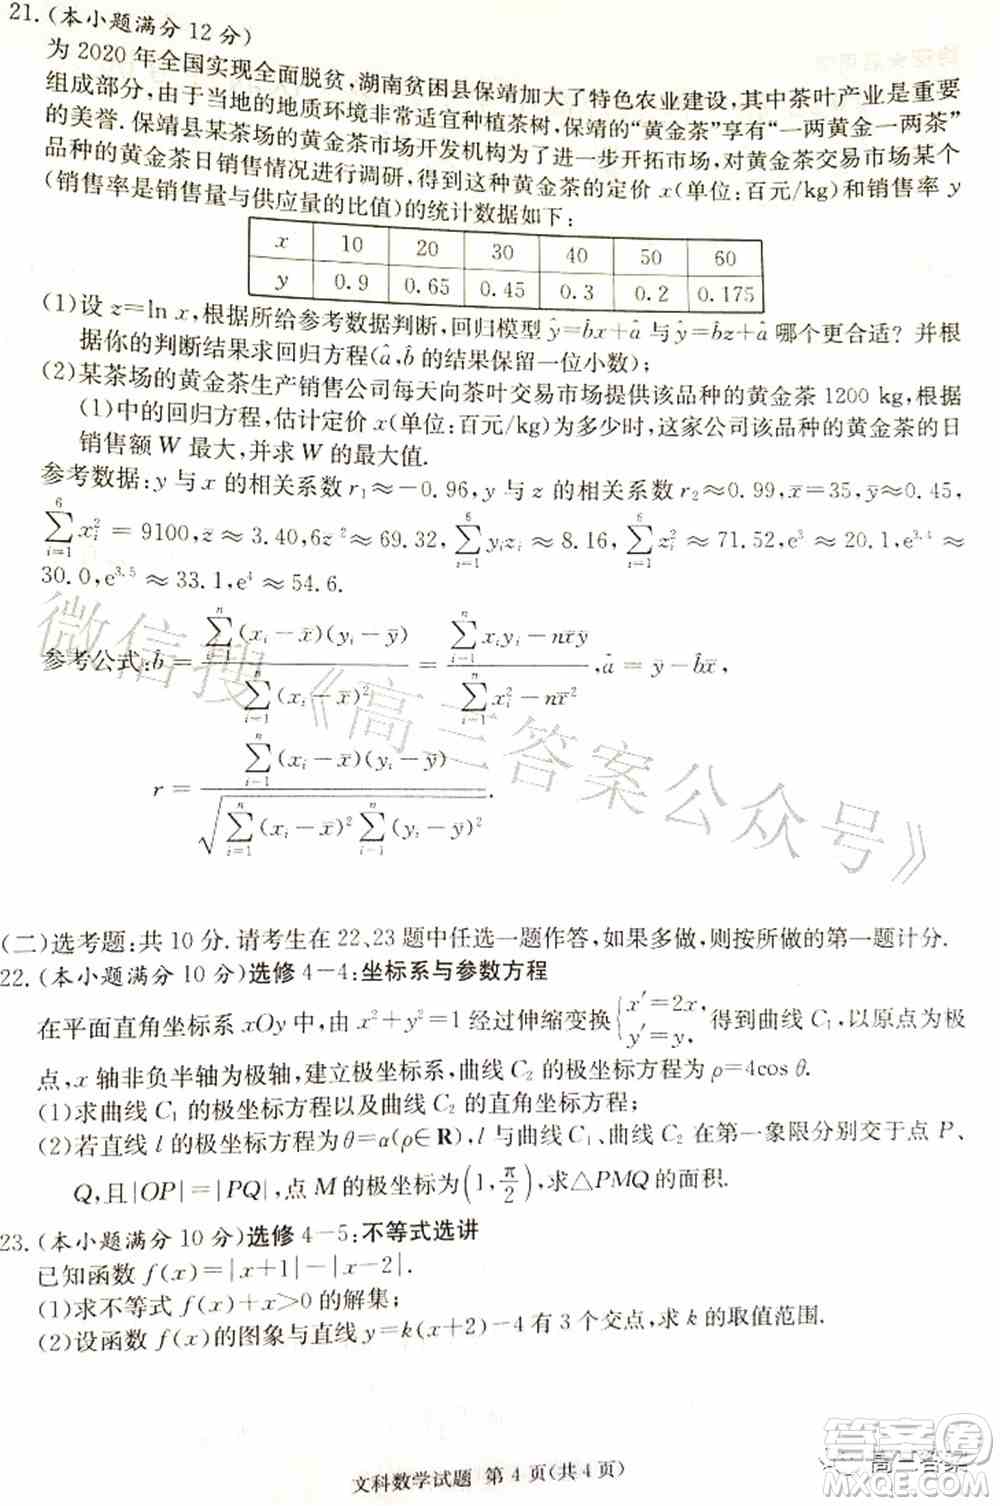 21.(本小题满分12分)
为2020年全国实现全面脱贫,湖南贫困县保靖加大了特色农业建设,其中茶叶产业是重要
组成部分,由于当地的地质环境非常适宜种植茶树,保靖的“黄金茶”享有“一两黄金一两茶”
的美誉.保靖县某茶场的黄金茶市场开发机构为了进一步开拓市场,对黄金茶交易市场某个
品种的黄金茶日销售情况进行调研,得到这种黄金茶的定价 x(单位:百元/kg)和销售率 y
(销售率是销售量与供应量的比值)的统计数据如下:
x 10 20 30 40 50 60
y 0.9 0.65 0.45 0.3 0.2 0.175
(1)设 z=ln x,根据所给参考数据判断,回归模型 ŷ=b̂x+â 与 ŷ=b̂z+â 哪个更合适?并根
据你的判断结果求回归方程(â,b̂ 的结果保留一位小数);
(2)某茶场的黄金茶生产销售公司每天向茶叶交易市场提供该品种的黄金茶 1200 kg,根据
(1)中的回归方程,估计定价 x(单位:百元/kg)为多少时,这家公司该品种的黄金茶的日
销售额 W 最大,并求 W 的最大值.
参考数据:y 与 x 的相关系数 r₁≈−0.96,y 与 z 的相关系数 r₂≈0.99,x̄=35,ȳ≈0.45,
∑_{i=1}^{6} x_i²=9100,z̄≈3.40,6z̄²≈69.32,∑_{i=1}^{6} y_i z_i≈8.16,∑_{i=1}^{6} z_i²≈71.52,e³≈20.1,e^{3.4}≈
30.0,e^{3.5}≈33.1,e⁴≈54.6.
参考公式:b̂=∑_{i=1}^{n}(x_i−x̄)(y_i−ȳ)/∑_{i=1}^{n}(x_i−x̄)²=(∑_{i=1}^{n}x_i y_i−nx̄ȳ)/(∑_{i=1}^{n}x_i²−nx̄²),â=ȳ−b̂x̄,
r=∑_{i=1}^{n}(x_i−x̄)(y_i−ȳ)/√(∑_{i=1}^{n}(x_i−x̄)²∑_{i=1}^{n}(y_i−ȳ)²).
微信搜《高三答案公众号》
(二)选考题:共10分.请考生在22、23题中任选一题作答,如果多做,则按所做的第一题计分.
22.(本小题满分10分)选修4−4:坐标系与参数方程
在平面直角坐标系 xOy 中,由 x²+y²=1 经过伸缩变换{x′=2x, y′=y, 得到曲线 C₁,以原点为极
点,x 轴非负半轴为极轴,建立极坐标系,曲线 C₂ 的极坐标方程为 ρ=4cosθ.
(1)求曲线 C₁ 的极坐标方程以及曲线 C₂ 的直角坐标方程;
(2)若直线 l 的极坐标方程为 θ=α(ρ∈R),l 与曲线 C₁、曲线 C₂ 在第一象限分别交于点 P、
Q,且|OP|=|PQ|,点 M 的极坐标为(1,π/2),求△PMQ 的面积.
23.(本小题满分10分)选修4−5:不等式选讲
已知函数 f(x)=|x+1|−|x−2|.
(1)求不等式 f(x)+x>0 的解集;
(2)设函数 f(x)的图象与直线 y=k(x+2)−4 有3个交点,求 k 的取值范围.
文科数学试题 第4页(共4页)
高三答案
答案圈